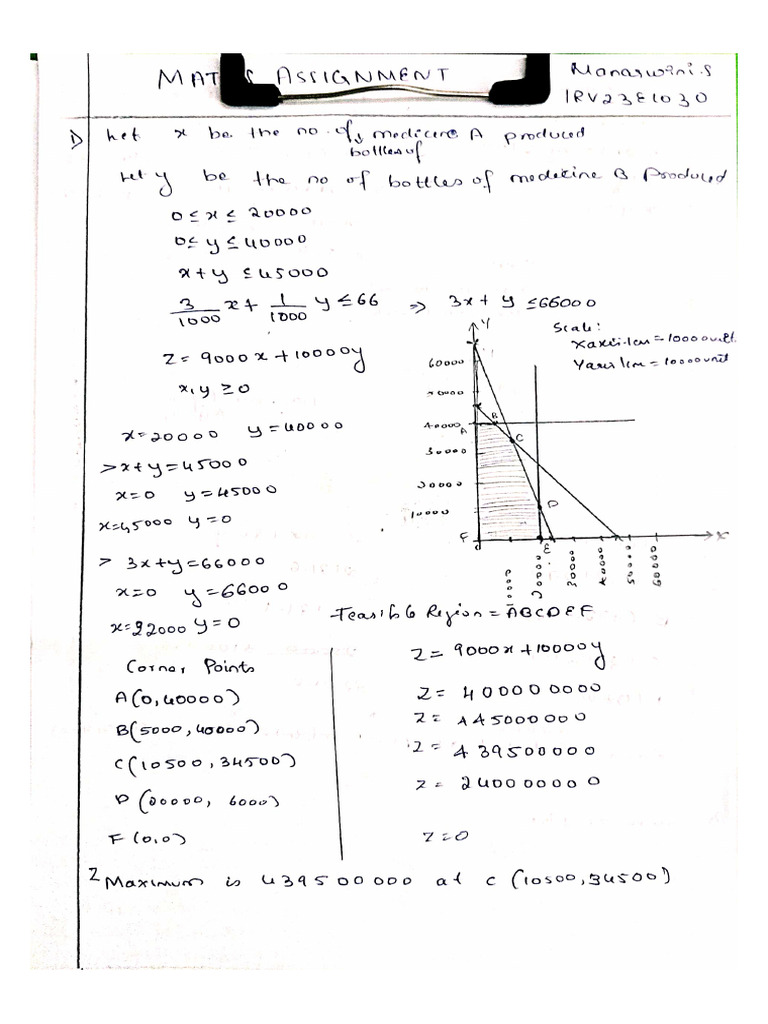 MATHS ASSIGNMENT
Manaswini.S
1RV23EC030
1) Let x be the no. of bottles of medicine A produced
Let y be the no of bottles of medicine B produced
0 ≤ x ≤ 20000
0 ≤ y ≤ 40000
x + y ≤ 45000
3/1000 x + 1/1000 y ≤ 66 ⇒ 3x + y ≤ 66000
Z = 9000x + 10000y
x, y ≥ 0
Scale:
X axis 1cm = 10000 unit
Y axis 1cm = 10000 unit
Y
60000
50000
40000
30000
20000
10000
A
B
C
D
E
F
X
10000
20000
30000
40000
50000
60000
x = 20000 y = 40000
> x + y = 45000
x = 0 y = 45000
x = 45000 y = 0
> 3x + y = 66000
x = 0 y = 66000
x = 22000 y = 0
Feasible Region = ABCDEF
Corner Points
Z = 9000x + 10000y
A (0, 40000)
Z = 400000000
B (5000, 40000)
Z = 445000000
C (10500, 34500)
Z = 439500000
D (20000, 6000)
Z = 240000000
F (0,0)
Z = 0
Z Maximum is 439500000 at C (10500, 34500)